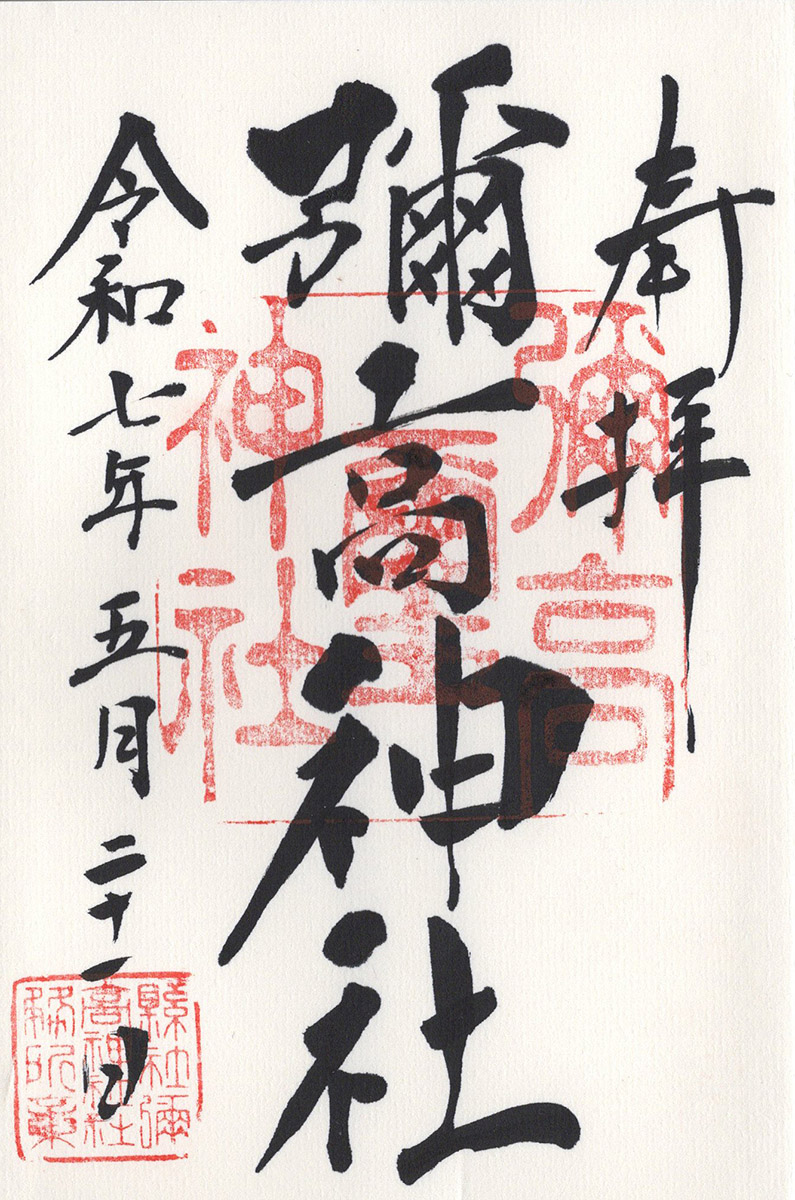 奉拝
彌高神社
令和七年五月二十一日
彌高
壐
神社
縣社彌
高神社社
務所章